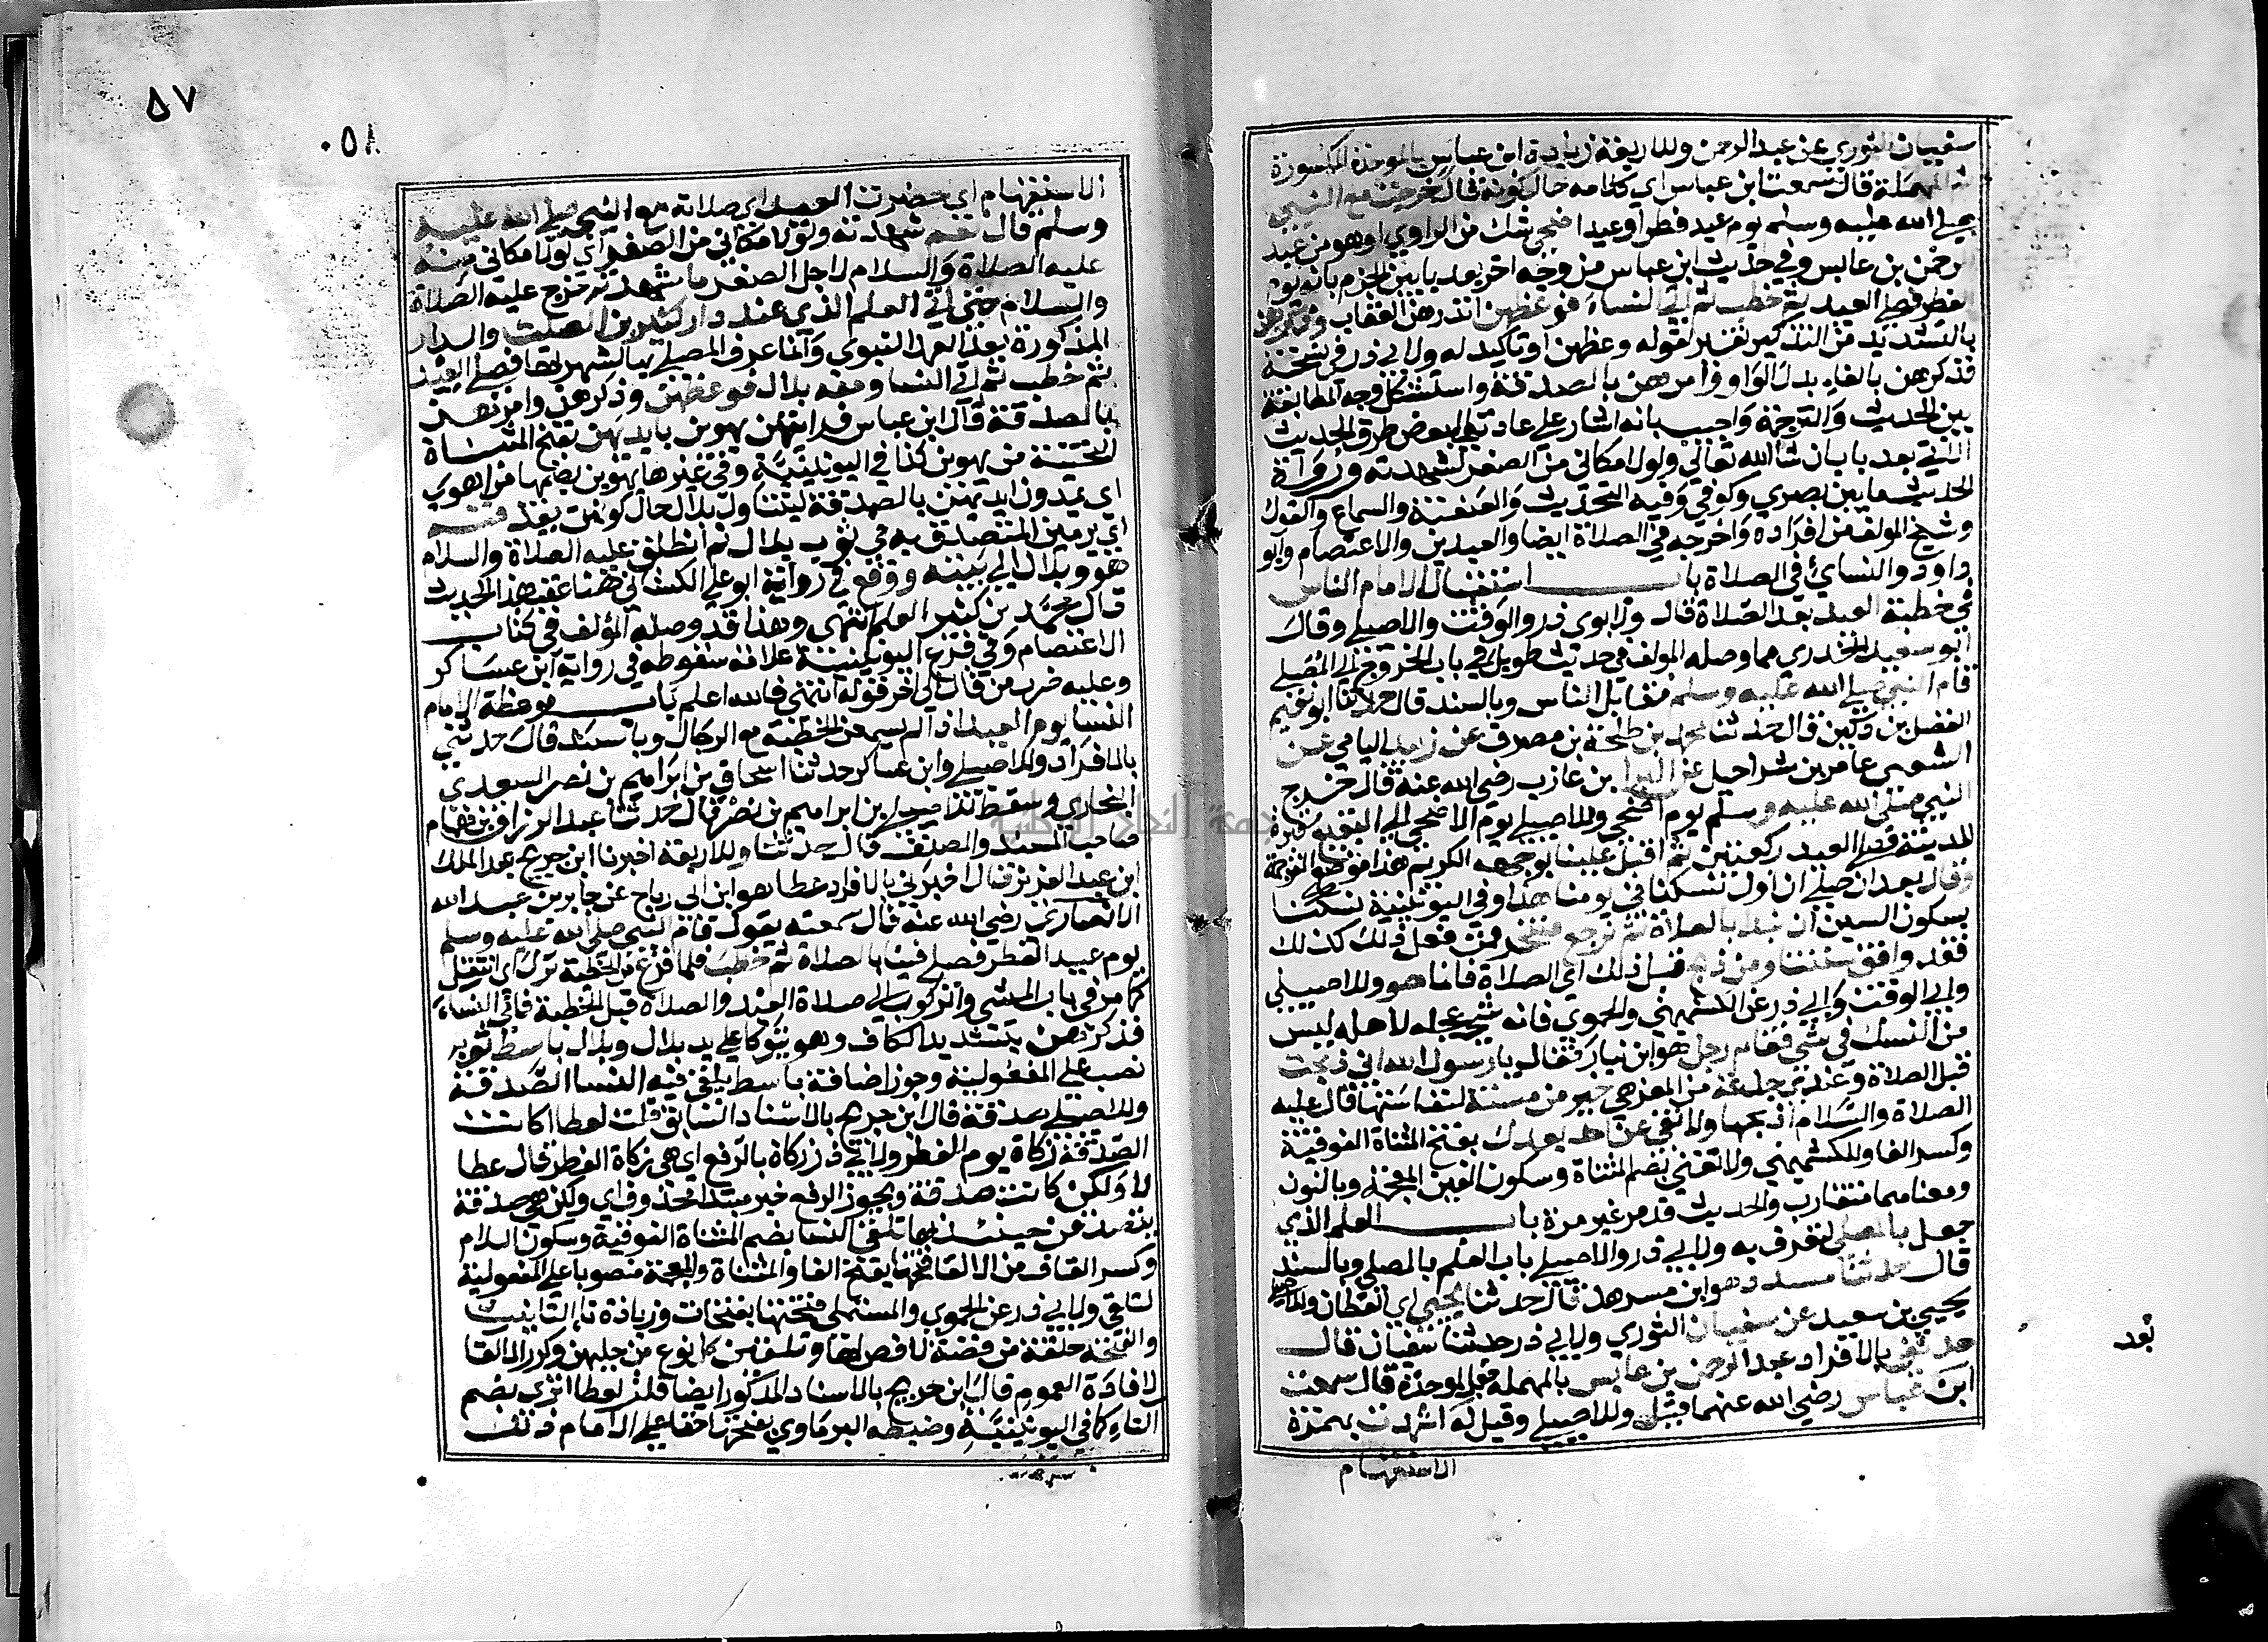 سفيان الثوري عن عبد الرحمن وللاربعة زيادة ابن عباس بالموحدة المكسورة
ثم المهملة قال سمعت ابن عباس اي كلامه حال كونه قال خرجت مع النبي
صلى الله عليه وسلم يوم عيد فطر أو عيد اضحى شك من الراوي او هو من عبد
الرحمن بن عابس وفي حديث ابن عباس من وجه اخر بعد بابين الجزم بانه يوم
الفطر فصلى العيد ثم خطب ثم اتي النساء فوعظهن انذرهن العقاب وذكرهن
بالتشديد من التذكير تفسير لقوله وعظهن او تاكيد له ولابي ذر في نسخة
فذكرهن بالفاء بدل الواو وأمرهن بالصدقة واستشكل وجه المطابقة
بين الحديث والترجمة واجيب بانه اشار على عادته لبعض طرق الحديث
الاتي بعد باب ان شا الله تعالى ولولا مكاني من الصغر لشهدته ورواة
الحديث ما بين بصري وكوفي وفيه التحديث والعنعنة والسماع والقول
وشيخ المولف من افراده واخرجه في الصلاة ايضا والعيدين والاعتصام وابو
داود والنسائ في الصلاة باب استقبال الامام الناس
في خطبة العيد بعد الصلاة قال ولابوي ذر والوقت والاصيلي وقال
ابو سعيد الخدري مما وصله المولف في حديث طويل في باب الخروج الى المصلى
قام النبي صلى الله عليه وسلم مقابل الناس وبالسند قال حدثنا ابو نعيم
الفضل بن دكين قال حدثنا محمد بن طلحة بن مصرف عن زبيد اليامي عن
الشعبي عامر بن شراحيل عن البرا بن عازب رضي الله عنه قال خرج
النبي صلى الله عليه وسلم يوم اضحى وللاصيلي يوم الاضحى الى البقيع مقبرة
المدينة فصلى العيد ركعتين ثم اقبل علينا بوجهه الكريم هذا موضع الترجمة
وقال بعد ان صلى ان اول نسكنا في يومنا هذا وفي اليونينية نسكنا
بسكون السين ان نبدا بالصلاة ثم نرجع فننحر فمن فعل ذلك كذلك
فقد وافق سنتنا ومن ذبح قبل ذلك اي الصلاة فانما هو وللاصيلي
ولابي الوقت وابي ذر عن الكشميهني والحموي فانه شي عجله لاهله ليس
من النسك في شي فقام رجل هو ابن نيار فقال يا رسول الله اني ذبحت
قبل الصلاة وعندي جذعة من المعز هي خير من مسنة لنفاستها قال عليه
الصلاة والسلام اذبحها ولا تفي عن احد بعدك بفتح المثناة الفوقية
وكسر الفا وللكشميهني ولا تغني بضم المثناة وسكون الغين المعجمة وبالنون
ومعناهما متقارب والحديث قد مر غير مرة باب العلم الذي
جعل بالمصلى لتعرف به ولابي ذر والاصيلي باب العلم بالمصلى وبالسند
قال حدثنا مسدد وهو ابن مسرهد قال حدثنا يحيى اي القطان وللاصيلي
يحيى بن سعيد عن سفيان الثوري ولابي ذر حدثنا سفيان قال
حدثني بالافراد عبد الرحمن بن عابس بالمهملة بعد الموحدة قال سمعت
ابن عباس رضي الله عنهما قيل وللاصيلي وقيل له اشهدت بهمزة
الاستفهام
بعد
٥٧
٥٨
الاستفهام اي حضرت العيد اي صلاته مع النبي صلى الله عليه
وسلم قال نعم شهدته ولولا مكاني من الصغر اي لولا مكاني منه
عليه الصلاة والسلام لاجل الصغر ما شهدته خرج عليه الصلاة
والسلام حتى اتي العلم الذي عند دار كثير بن الصلت والدار
المذكورة بعد العهد النبوي وانما عرف المصلى بها لشهرتها فصلى العيد
ثم خطب ثم اتي النسا ومعه بلال فوعظهن وذكرهن وامرهن
بالصدقة قال ابن عباس فرايتهن يهوين بايديهن بفتح المثناة
التحتية من يهوين كذا في اليونينية وفي غيرها يهوين بضمها من اهوى
اي يمددن ايديهن بالصدقة ليتناول بلال حال كونهن يقذفنه
اي يرمين المتصدق به في ثوب بلال ثم انطلق عليه الصلاة والسلام
هو وبلال الى بيته ووقع في رواية ابو علي الكشاني هنا عقب هذا الحديث
قال محمد بن كثير العلم انتهى وهذا قد وصله المؤلف في كتاب
الاعتصام وفي فرع اليونينية علامة سقوطه في رواية ابن عساكر
وعليه ضرب من قال الى اخر قوله انتهى فالله اعلم باب موعظة الامام
النسا يوم العيد اذا لم يسمعن الخطبة مع الرجال وبالسند قال حدثني
بالافراد وللاصيلي وابن عساكر حدثنا اسحاق بن ابراهيم بن نصر السعدي
البخاري وسقط للاصيلي بن ابراهيم بن نصر قال حدثنا عبد الرزاق بن همام
صاحب المسند والمصنف قال حدثنا وللاربعة اخبرنا ابن جريج عبد الملك
ابن عبد العزيز قال اخبرني بالافراد عطا هو ابن ابي رباح عن جابر بن عبد الله
الانصاري رضي الله عنه قال سمعته يقول قام النبي صلى الله عليه وسلم
يوم عيد الفطر فصلى فبدا بالصلاة ثم خطب فلما فرغ من الخطبة نزل اي انتقل
كما مر في باب المشي والركوب الى صلاة العيد والصلاة قبل الخطبة فاتى النساء
فذكرهن بتشديد الكاف وهو يتوكا على يد بلال وبلال باسط ثوبه
نصب على المفعولية وجوز اضافة باسط يلقي فيه النسا الصدقة
وللاصيلي صدقة قال ابن جريج بالاسناد السابق قلت لعطا اكانت
الصدقة زكاة يوم الفطر ولابي ذر زكاة بالرفع اي هي زكاة الفطر قال عطا
لا ولكن كانت صدقة ويجوز الرفع خبر مبتدا محذوف اي ولكن هي صدقة
يتصدقن حينئذ بها تلقي النسا بضم المثناة الفوقية وسكون اللام
وكسر القاف من الالقا فتخها بفتح الفا والمثناة والمعجمة منصوبا على المفعولية
لتلقي ولابي ذر عن الحموي والمستملي فتختها بفتحات وزيادة تا التانيث
والفتخة حلقة من فضة لا فص لها وتلقين كل نوع من حليهن وكرر الالقا
لافادة العموم قال ابن جريج بالاسناد المذكور ايضا قلت لعطا اترى بضم
التاء كما في اليونينية وضبطه البرماوي بفتحها حقا على الامام ذلك